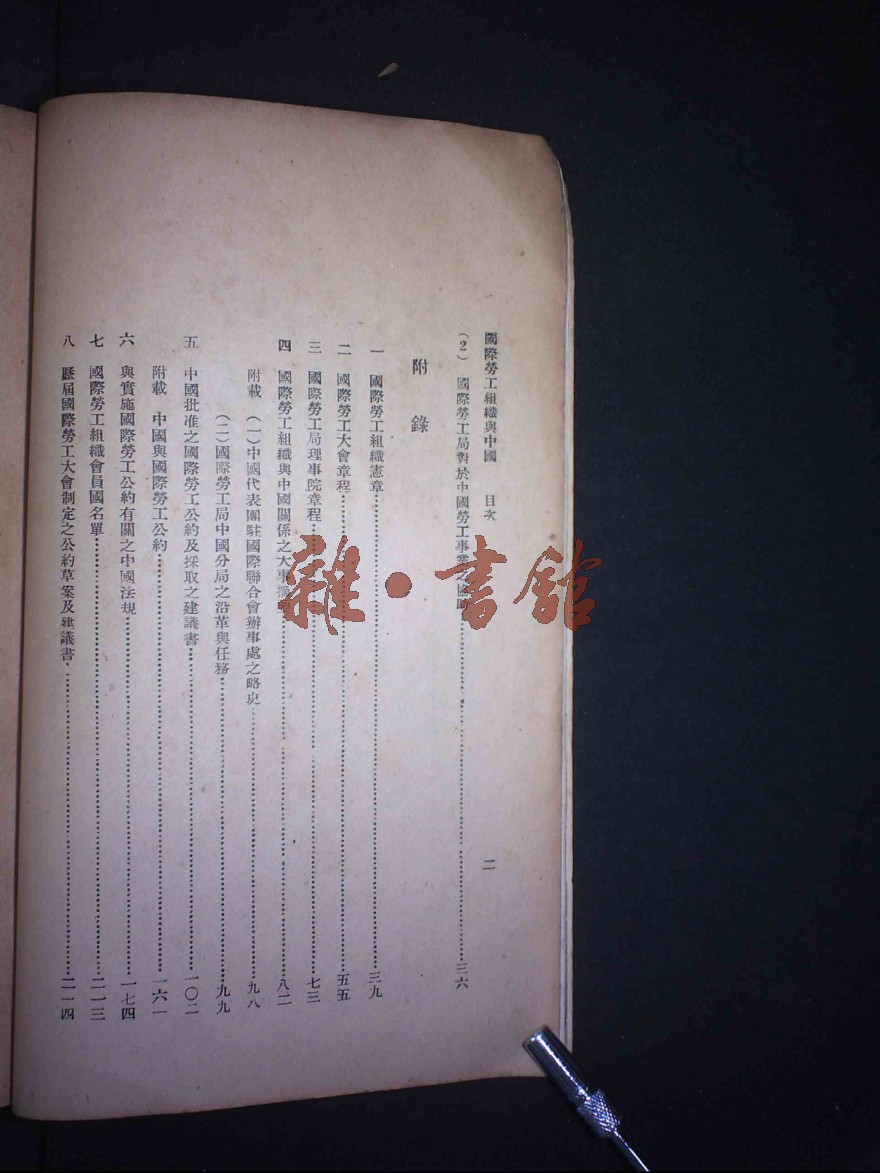 國際勞工組織與中國 目次 二
(2) 國際勞工局對於中國勞工事業之協助……三六
附錄
一 國際勞工組織憲章……三九
二 國際勞工大會章程……五五
三 國際勞工局理事院章程……七三
四 國際勞工組織與中國關係之大事摘要……八二
附載 (一)中國代表團駐國際聯合會辦事處之略史……九八
(二)國際勞工局中國分局之沿革與任務……九九
五 中國批准之國際勞工公約及採取之建議書……一〇二
附載 中國與國際勞工公約……一六一
六 與實施國際勞工公約有關之中國法規……一七四
七 國際勞工組織會員國名單……二一三
八 歷屆國際勞工大會制定之公約草案及建議書……二一四
雜·書館